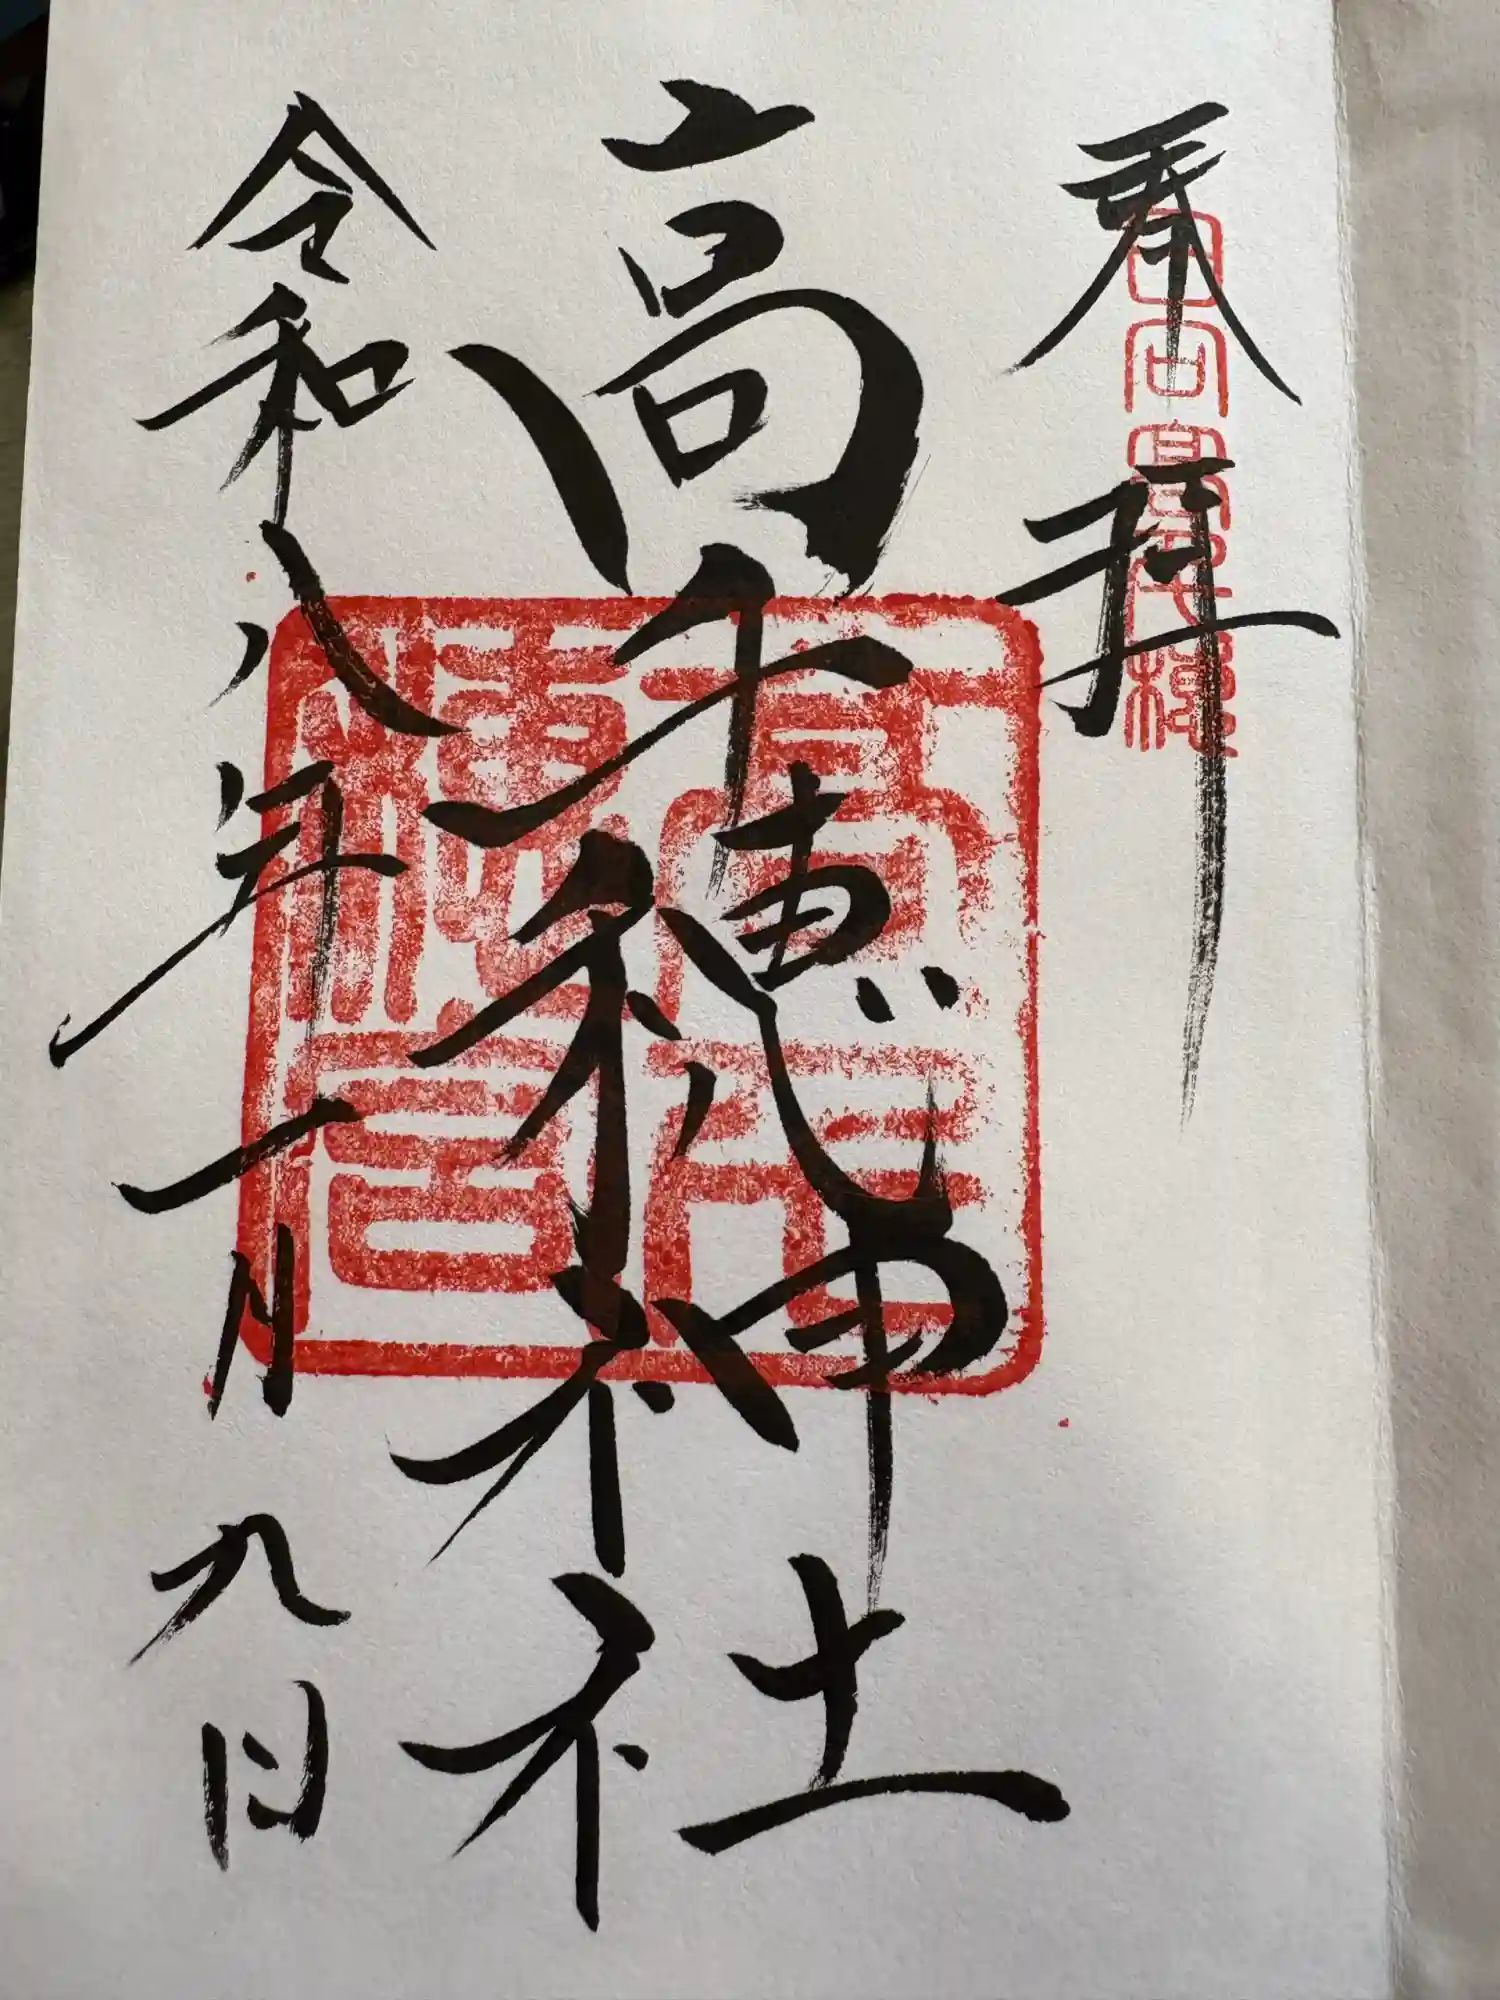 奉拝
日向高千穂
高千穂神社
高千穂宮
令和八年一月九日